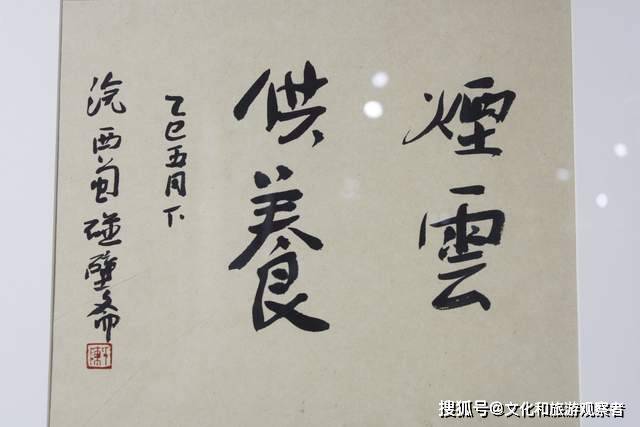 煙雲
供養
乙巳五月下
西蜀碰壁斋
搜狐号@文化和旅游观察者